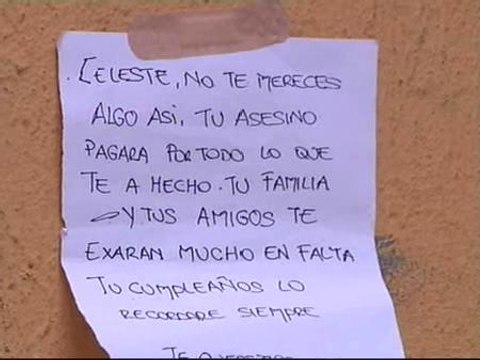 CELESTE, NO TE MERECES
ALGO ASI, TU ASESINO
PAGARA POR TODO LO QUE
TE A HECHO. TU FAMILIA
Y TUS AMIGOS TE
EXARAN MUCHO EN FALTA
TU CUMPLEAÑOS LO
RECORDARE SIEMPRE
TE